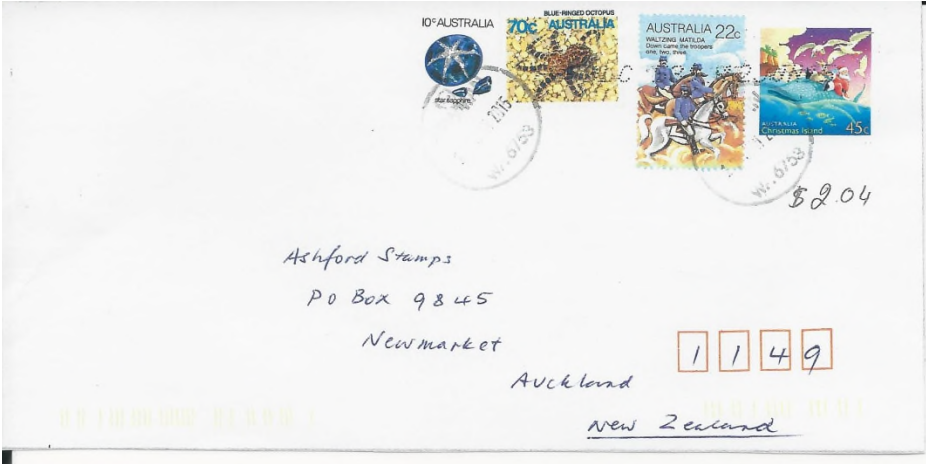 10c AUSTRALIA
star sapphire
BLUE-RINGED OCTOPUS
70c AUSTRALIA
AUSTRALIA 22c
WALTZING MATILDA
Down came the troopers
one, two, three,
AUSTRALIA
Christmas Island 45c
2015
W.A. 6753
W.A. 6753
$2.04
Ashford Stamps
PO Box 9845
Newmarket
1149
Auckland
New Zealand